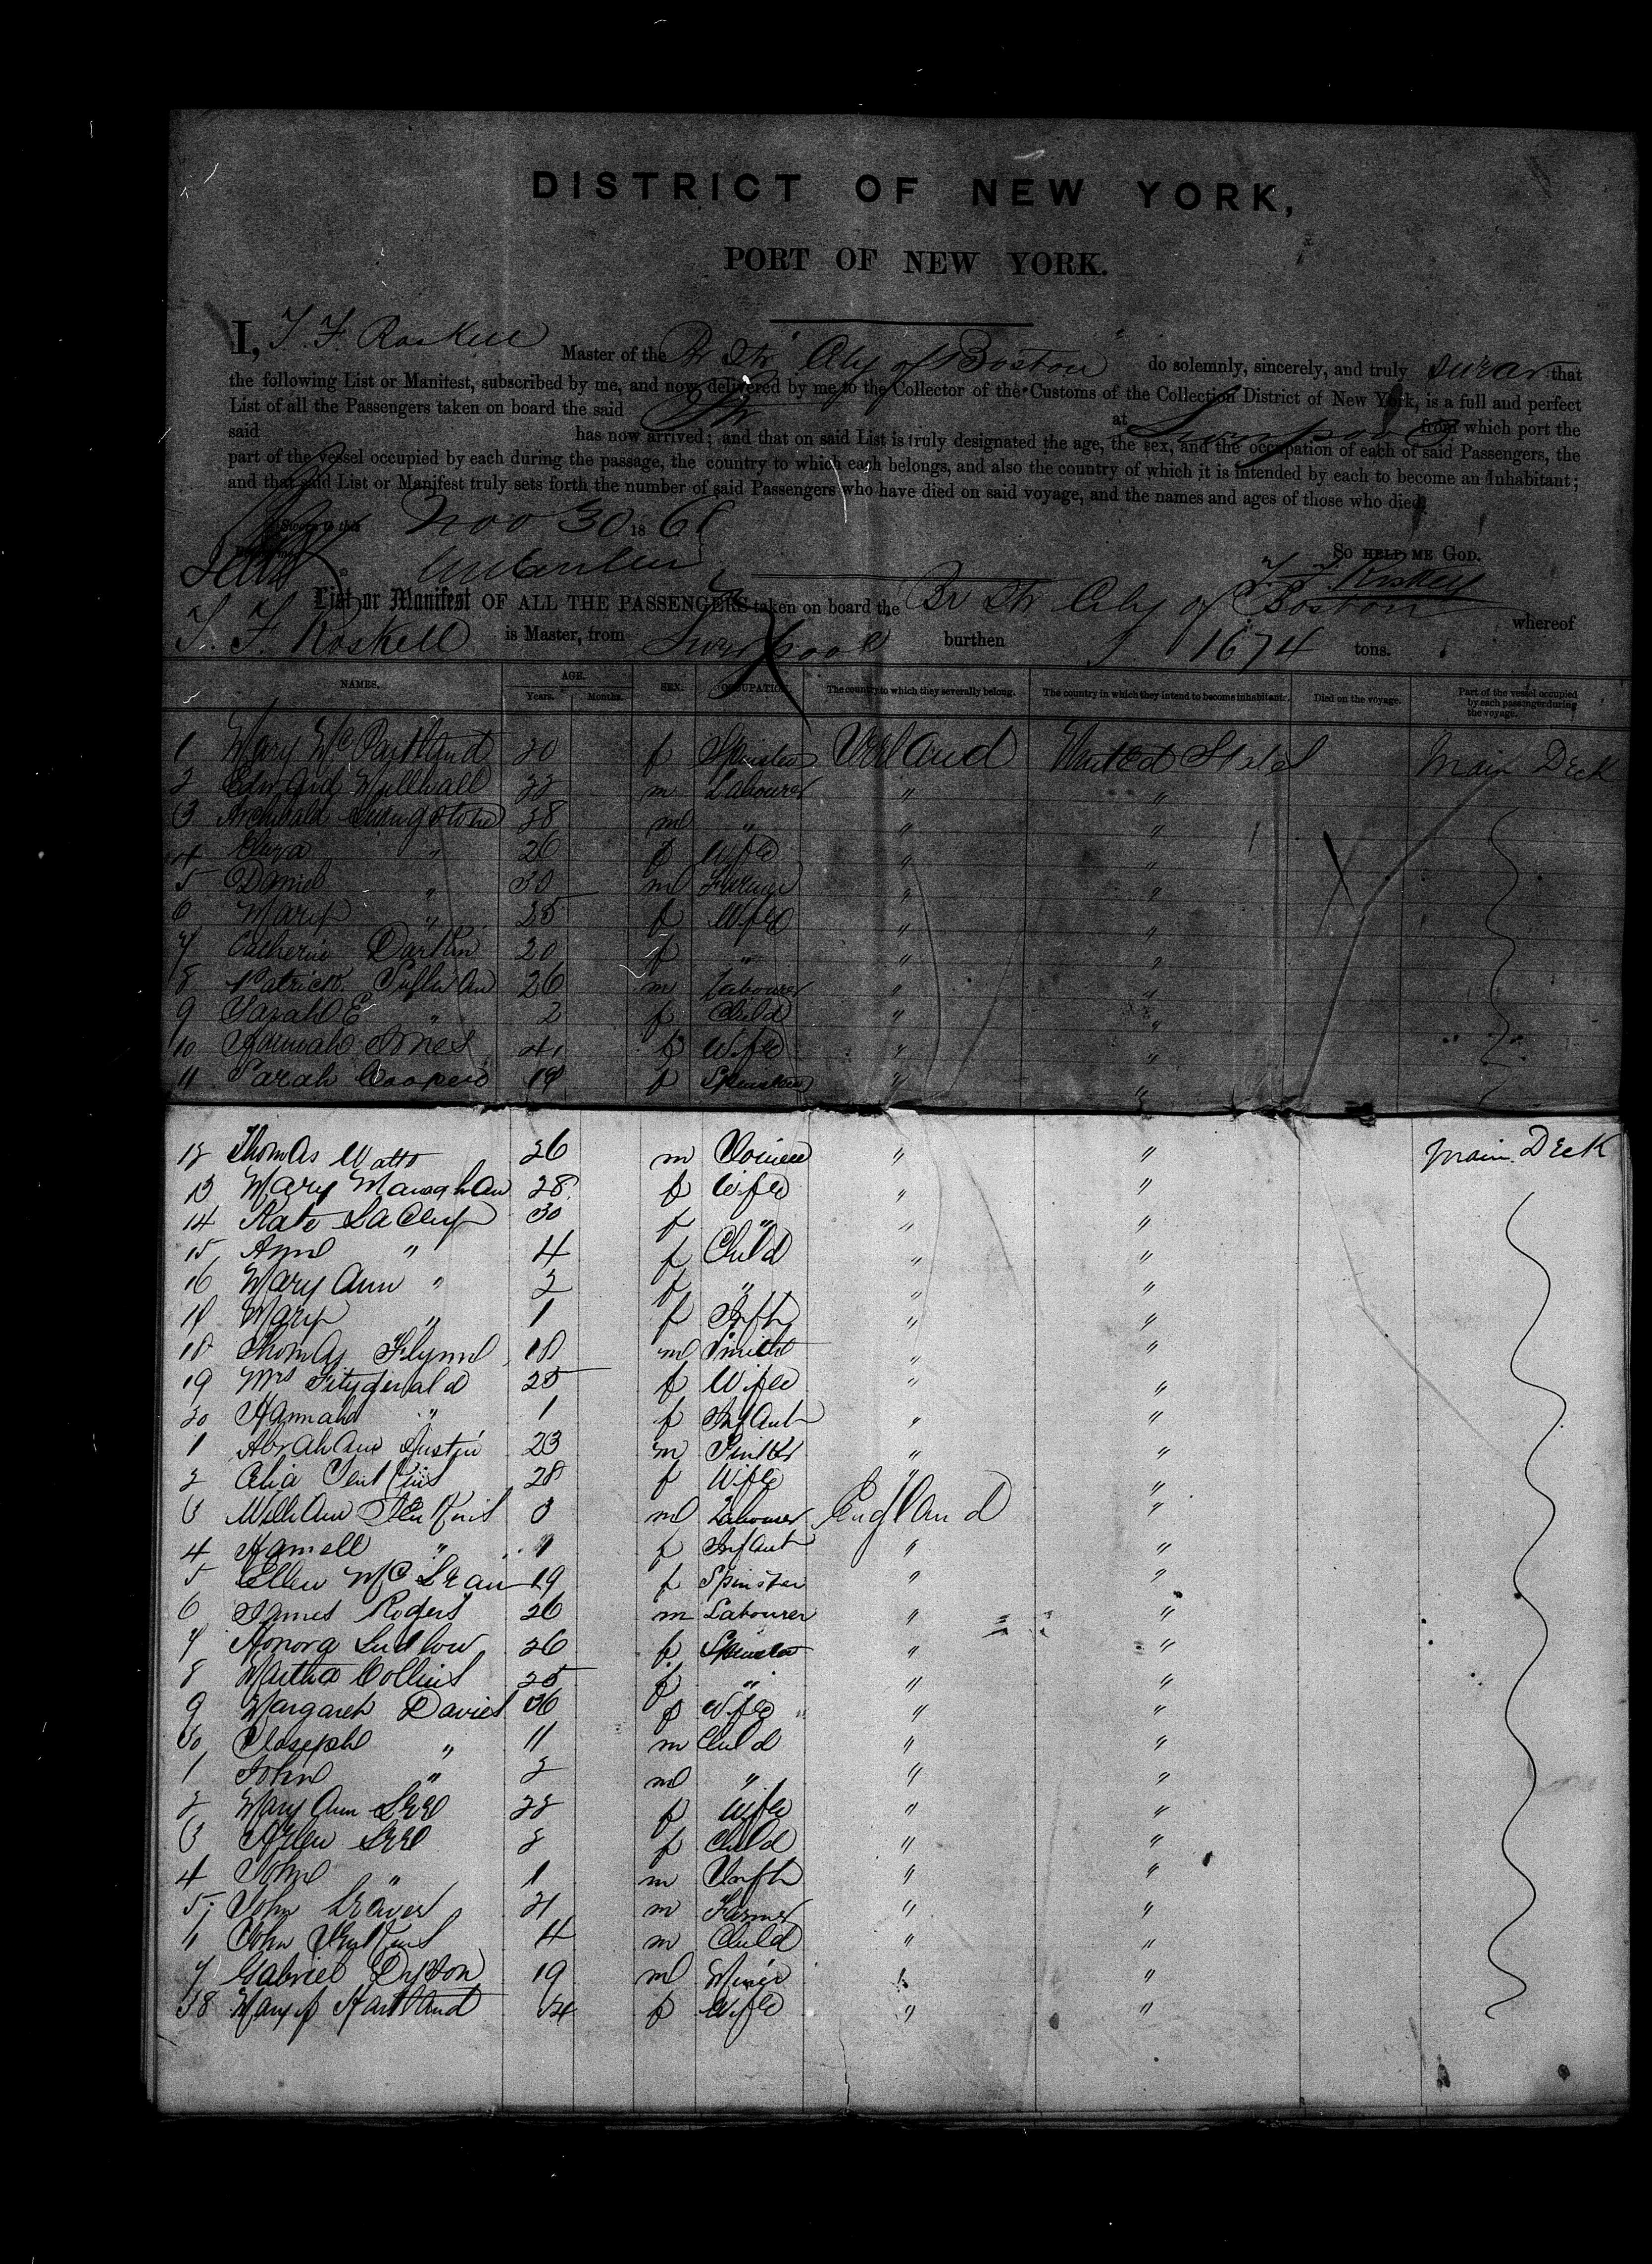 DISTRICT OF NEW YORK,
PORT OF NEW YORK.
I, T. F. Roskell Master of the Br Str "City of Boston" do solemnly, sincerely, and truly swear that
the following List or Manifest, subscribed by me, and now delivered by me to the Collector of the Customs of the Collection District of New York, is a full and perfect
List of all the Passengers taken on board the said Str at Liverpool from which port the
said has now arrived; and that on said List is truly designated the age, the sex, and the occupation of each of said Passengers, the
part of the vessel occupied by each during the passage, the country to which each belongs, and also the country of which it is intended by each to become an Inhabitant;
and that said List or Manifest truly sets forth the number of said Passengers who have died on said voyage, and the names and ages of those who died.
Sworn to this Nov 30 186
So HELP ME GOD.
T. F. Roskell
List or Manifest OF ALL THE PASSENGERS taken on board the Br Str City of Boston whereof
T. F. Roskell is Master, from Liverpool burthen 1674 tons.
NAMES. AGE. Years. Months. SEX. OCCUPATION. The country to which they severally belong. The country in which they intend to become inhabitants. Died on the voyage. Part of the vessel occupied by each passenger during the voyage.
1 Mary McPartland 20 f Spinster Ireland United States Main Deck
2 Edward Mullhall 32 m Labourer " "
3 Archibald Livingstone 38 m " " "
4 Eliza " 26 f Wife " "
5 Daniel " 30 m " "
6 Mary " 25 f Wife " "
7 Catherine 20 f " " "
8 Patrick 26 m Labourer " "
9 Sarah E " 2 f Child " "
10 Hannah 41 f Wife " "
11 Sarah Cooper 19 f Spinster " "
12 Thomas Watts 26 m " " Main Deck
13 Mary Managhan 28 f Wife " "
14 Kate 30 f " " "
15 Ann " 4 f Child " "
16 Mary Ann " 2 f " " "
17 Mary " 1 f Inft " "
18 Thomas Flynn 18 m Smith " "
19 Mrs Fitzgerald 25 f Wife " "
20 Hannah " 1 f Infant " "
1 Abraham Austin 23 m " "
2 Celia Jenkins 28 f Wife " "
3 William Jenkins 3 m Labourer England "
4 " 1 f Infant " "
5 Ellen McLean 19 f Spinster " "
6 James Rogers 26 m Labourer " "
7 Honora Ludlow 26 f Spinster " "
8 Martha Collins 25 f " " "
9 Margaret Davies 36 f Wife " "
30 Joseph " 11 m Child " "
1 John " 2 m " " "
2 Mary Ann Lee 22 f Wife " "
3 Lee 2 f Child " "
4 John " 1 m Inft " "
5 John 21 m Farmer " "
6 John Jenkins 4 m Child " "
7 Gabriel 19 m Miner " "
38 Mary Hartland 24 f Wife " "